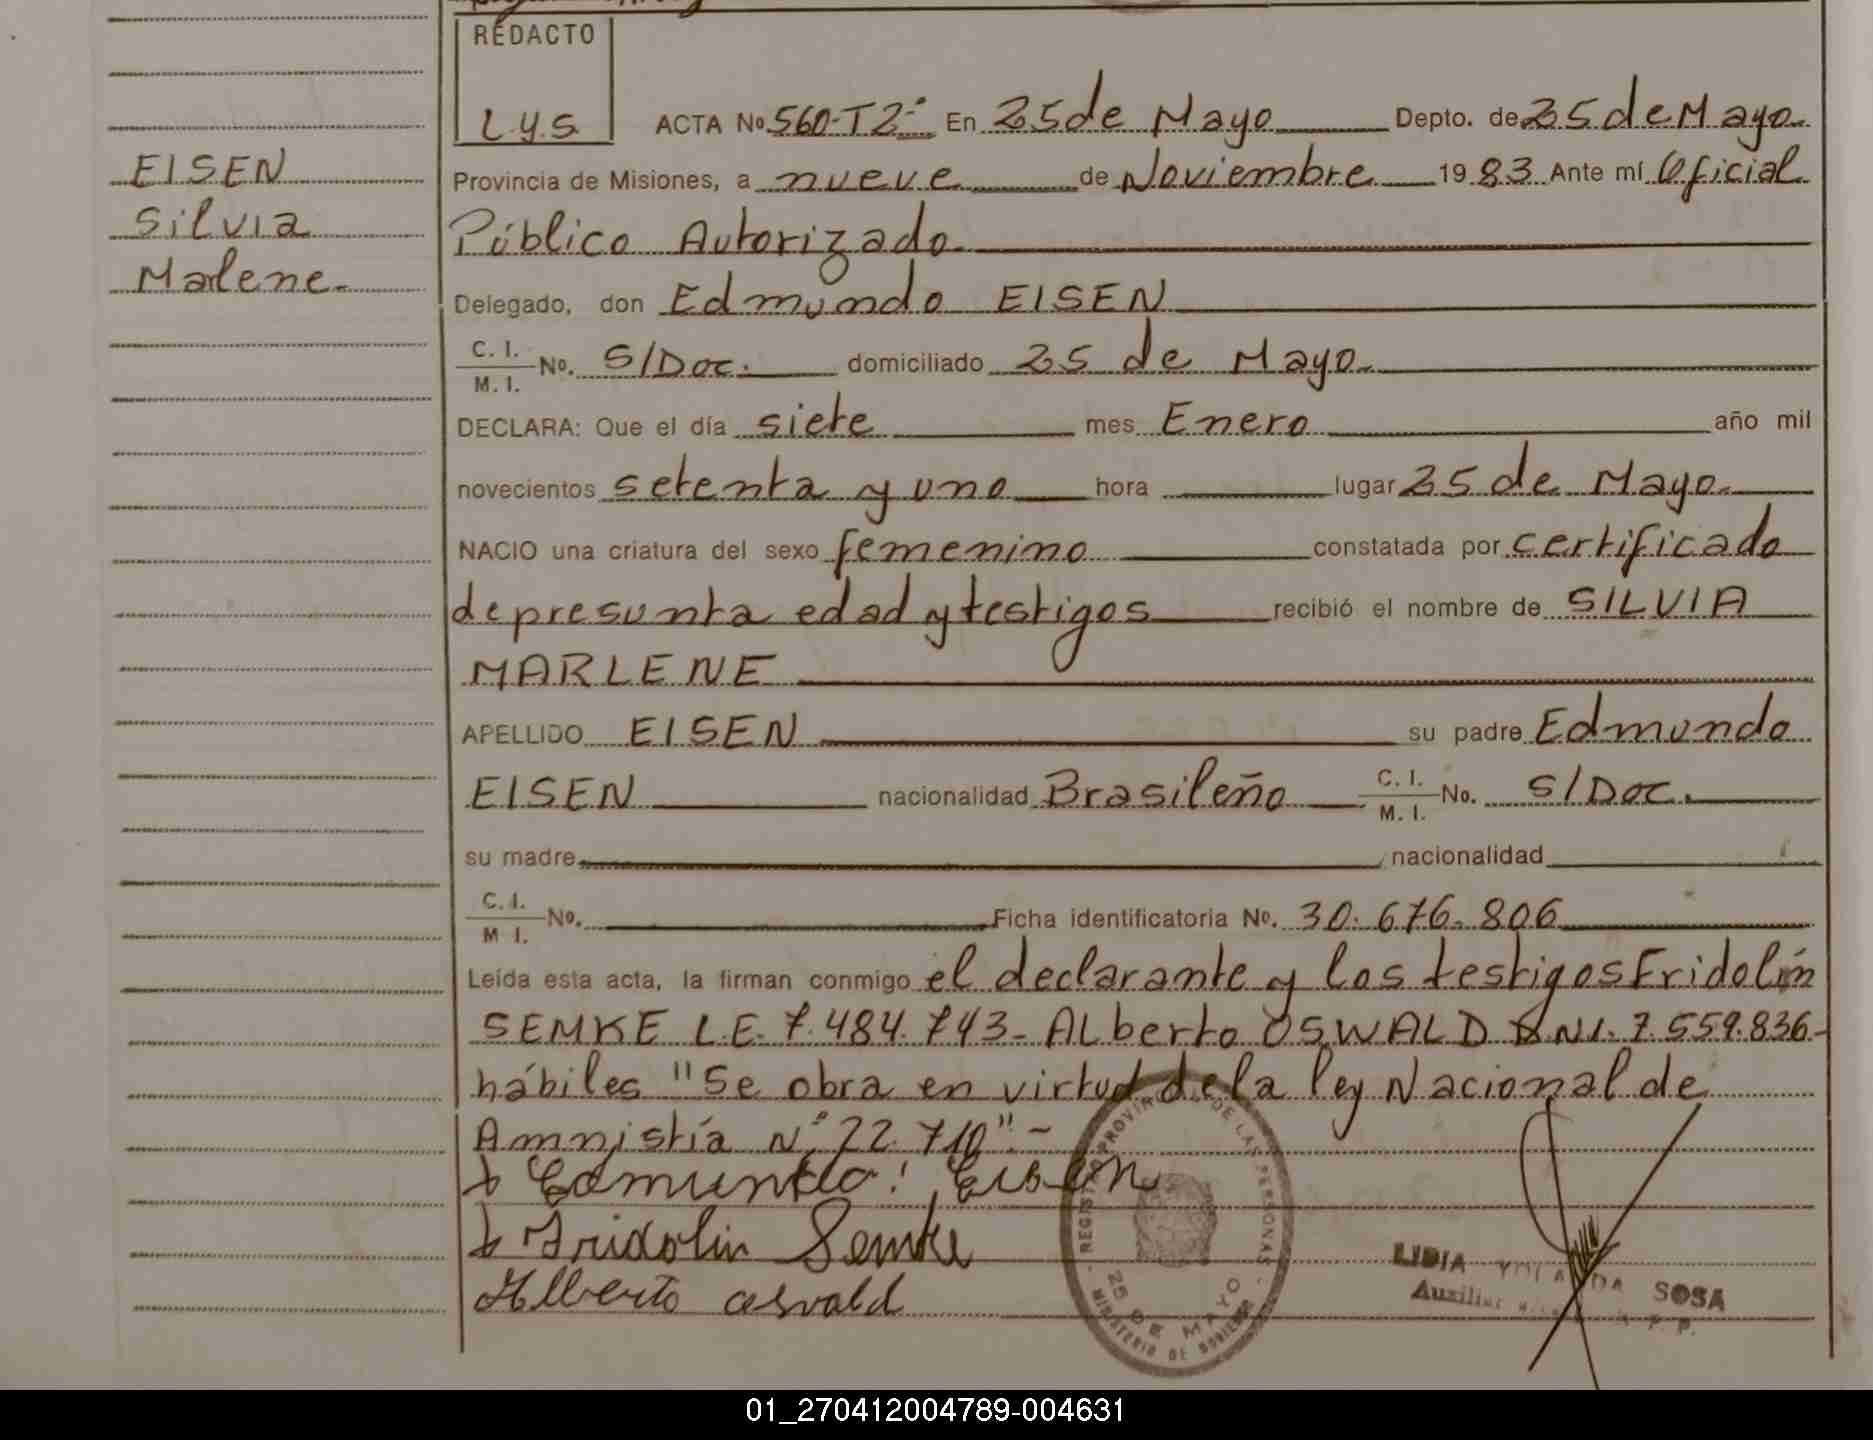 REDACTO
L.y.S.
ACTA No 560-T2° En 25 de Mayo Depto. de 25 de Mayo
EISEN
Silvia
Marlene.
Provincia de Misiones, a nueve de Noviembre 1983 Ante mí Oficial
Público Autorizado.
Delegado, don Edmundo EISEN
C. I.
M. I. No. S/Doc. domiciliado 25 de Mayo.
DECLARA: Que el día siete mes Enero año mil
novecientos setenta y uno hora lugar 25 de Mayo.
NACIO una criatura del sexo femenino constatada por certificado
de presunta edad y testigos recibió el nombre de SILVIA
MARLENE
APELLIDO EISEN su padre Edmundo
EISEN nacionalidad Brasileño C. I.
M. I. No. S/Doc.
su madre nacionalidad
C. I.
M I. No. Ficha identificatoria No. 30.676.806
Leída esta acta, la firman conmigo el declarante y los testigos Fridolín
SEMKE L.E. 7.484.743- ALberto OSWALD DNI. 7.559.836-
hábiles "Se obra en virtud de la ley Nacional de
Amnistía N° 22.710".-
Edmundo Eisen
Fridolin Semke
Alberto osvald
REGISTRO PROVINCIAL DE LAS PERSONAS
25 DE MAYO
MINISTERIO DE GOBIERNO
LIDIA YOLANDA SOSA
Auxiliar
01_270412004789-004631